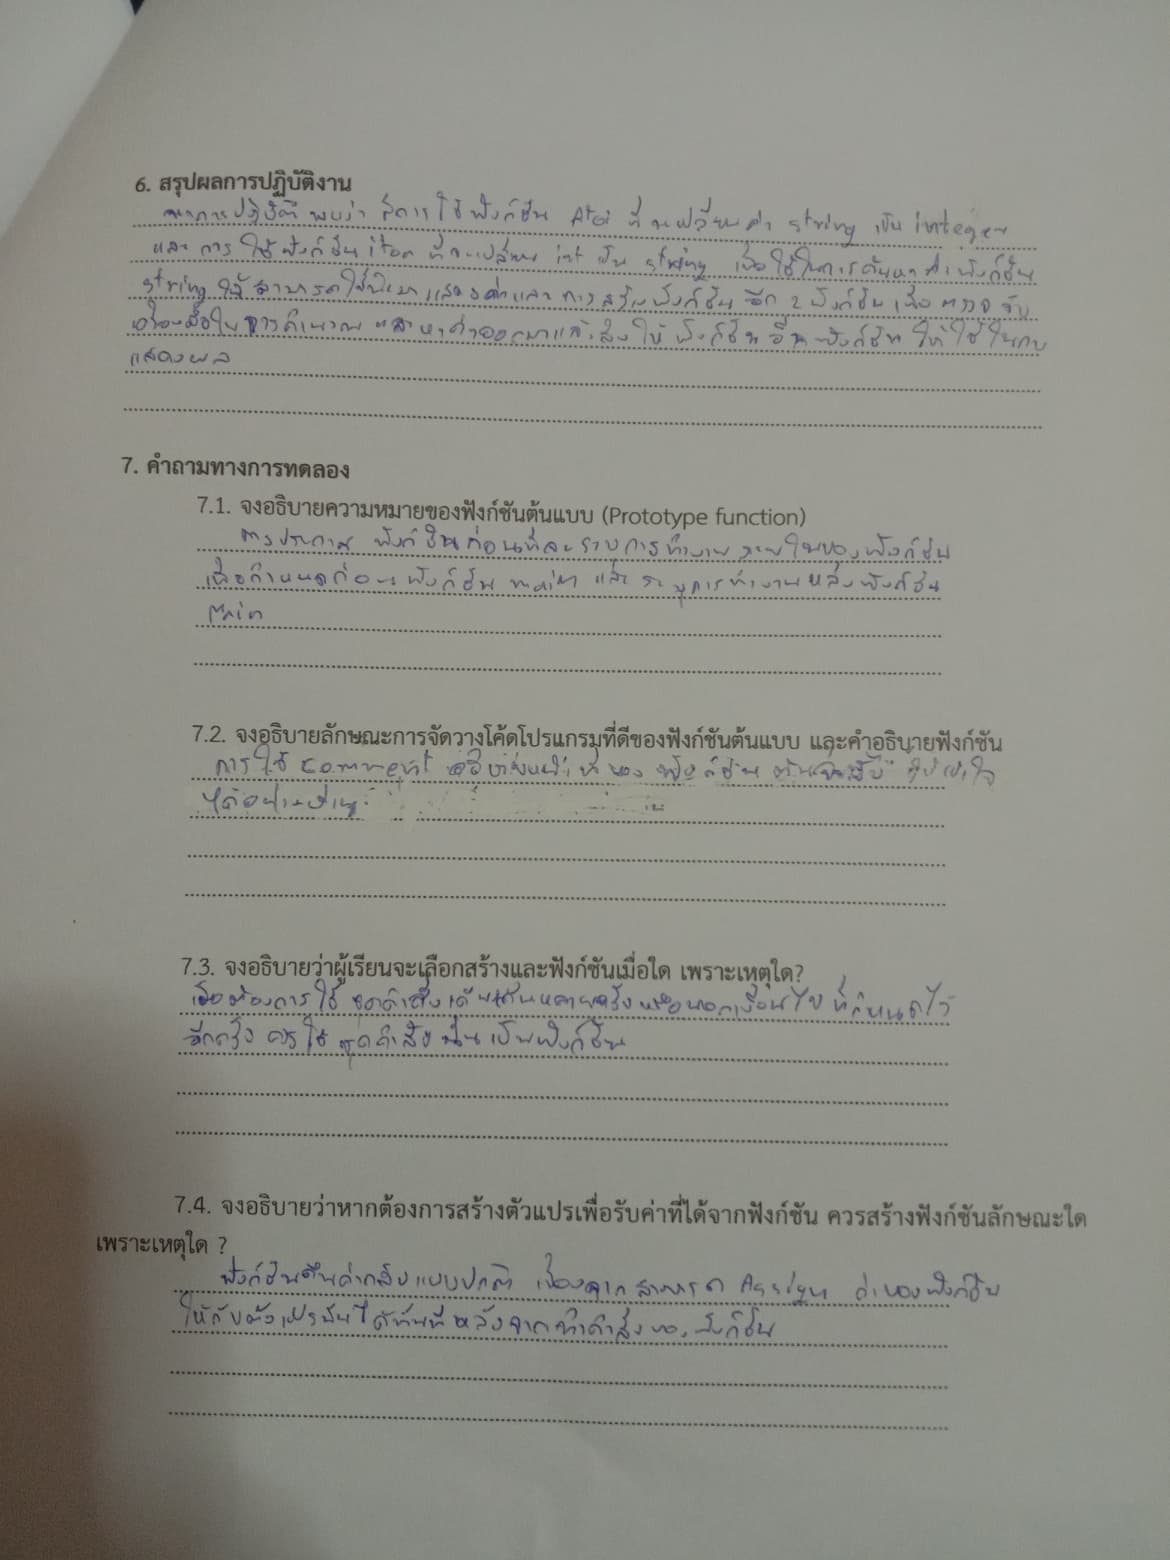 6. สรุปผลการปฏิบัติงาน
จากการปฏิบัติ พบว่า มีการใช้ฟังก์ชัน Atoi ที่ เปลี่ยนค่า string เป็น integer
และ การ ใช้ฟังก์ชัน itoa ที่จะเปลี่ยน int เป็น string เพื่อใช้ในการค้นหา ฟังก์ชัน
string ให้สามารถใช้ แสดงค่าและ การสร้างฟังก์ชัน อีก 2 ฟังก์ชัน เพื่อ ตรวจ จับ
ในการคำนวณ และหาค่าออกมาแล้วส่งให้ ฟังก์ชัน อื่น ฟังก์ชัน ให้ ใช้ ในการ
แสดงผล
7. คำถามทางการทดลอง
7.1. จงอธิบายความหมายของฟังก์ชันต้นแบบ (Prototype function)
การประกาศ ฟังก์ชันก่อนที่จะระบุการทำงาน ภายในของฟังก์ชัน
เพื่อกำหนดก่อน ฟังก์ชัน main และ ระบุการทำงานหลังฟังก์ชัน
Main
7.2. จงอธิบายลักษณะการจัดวางโค้ดโปรแกรมที่ดีของฟังก์ชันต้นแบบ และคำอธิบายฟังก์ชัน
การใช้ comment อธิบายหน้าที่ของ ฟังก์ชัน เข้าใจ
ได้อย่าง
7.3. จงอธิบายว่าผู้เรียนจะเลือกสร้างและฟังก์ชันเมื่อใด เพราะเหตุใด?
เมื่อต้องการใช้ ชุดคำสั่ง เดิมหลายครั้ง เงื่อนไข ที่กำหนดไว้
อีกครั้ง ควรใช้ ชุดคำสั่ง นั้น เป็นฟังก์ชัน
7.4. จงอธิบายว่าหากต้องการสร้างตัวแปรเพื่อรับค่าที่ได้จากฟังก์ชัน ควรสร้างฟังก์ชันลักษณะใด
เพราะเหตุใด ?
ฟังก์ชันคืนค่ากลับแบบปกติ เนื่องจาก สามารถ Assign ค่าของฟังก์ชัน
ให้กับตัวแปรนั้นได้ทันทีหลังจากทำคำสั่งของฟังก์ชัน